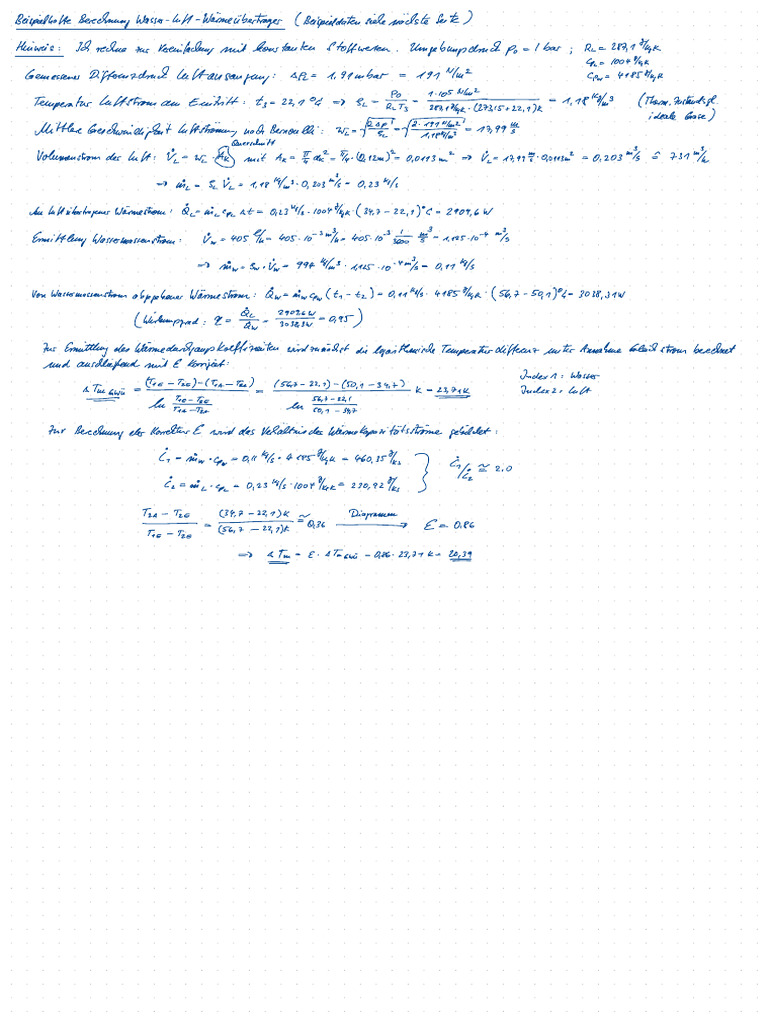 Beispielhafte Berechnung Wasser-Luft-Wärmeübertrager (Beispieldaten siehe nächste Seite)
Hinweis: Ich rechne zur Vereinfachung mit konstanten Stoffwerten. Umgebungsdruck p₀ = 1 bar ; R_L = 287,1 J/kgK
c_pL = 1004 J/kgK
c_pW = 4185 J/kgK
Gemessener Differenzdruck Luftausgang: Δp_L = 1,91 mbar = 191 N/m²
Temperatur Luftstrom am Eintritt: t₃ = 22,1 °C ⇒ ρ_L = p₀/(R_L T₃) = 1·10⁵ N/m² / (287,1 J/kgK · (273,15+22,1)K) = 1,18 kg/m³ (Therm. Zustandsgl. ideale Gase)
Mittlere Geschwindigkeit Luftströmung nach Bernoulli: w_L = √(2Δp/ρ_L) = √(2·191 N/m² / 1,18 kg/m³) = 17,99 m/s
Querschnitt
Volumenstrom der Luft: V̇_L = w_L · A_K mit A_K = π/4 d_K² = π/4 · (0,12m)² = 0,0113 m² ⇒ V̇_L = 17,99 m/s · 0,0113 m² = 0,203 m³/s ≙ 731 m³/h
⇒ ṁ_L = ρ_L V̇_L = 1,18 kg/m³ · 0,203 m³/s = 0,23 kg/s
An Luft übertragener Wärmestrom: Q̇_L = ṁ_L c_pL Δt = 0,23 kg/s · 1004 J/kgK · (34,7 - 22,1)°C = 2909,6 W
Ermittlung Wassermassenstrom: V̇_W = 405 l/h = 405·10⁻³ m³/h = 405·10⁻³ 1/3600 m³/s = 1,125·10⁻⁴ m³/s
⇒ ṁ_W = ρ_W · V̇_W = 997 kg/m³ · 1,125·10⁻⁴ m³/s = 0,11 kg/s
Von Wassermassenstrom abgegebener Wärmestrom: Q̇_W = ṁ_W c_pW (t₁ - t₂) = 0,11 kg/s · 4185 J/kgK · (56,7 - 50,1)°C = 3038,31 W
(Wirkungsgrad: η = Q̇_L/Q̇_W = 2909,6 W/3038,3 W = 0,95)
Zur Ermittlung des Wärmedurchgangskoeffizienten wird zunächst die logarithmische Temperaturdifferenz unter Annahme Gleichstrom berechnet
und anschließend mit E korrigiert:
ΔT_m = ((T₁E - T₂E) - (T₁A - T₂A)) / ln((T₁E - T₂E)/(T₁A - T₂A)) = ((56,7 - 22,1) - (50,1 - 34,7)) / ln((56,7 - 22,1)/(50,1 - 34,7)) K = 23,71 K
Index 1: Wasser
Index 2: Luft
Zur Berechnung der Korrektur E wird das Verhältnis der Wärmekapazitätsströme gebildet:
Ċ₁ = ṁ_W · c_pW = 0,11 kg/s · 4185 J/kgK = 460,35 J/Ks
Ċ₁/Ċ₂ ≅ 2.0
Ċ₂ = ṁ_L · c_pL = 0,23 kg/s · 1004 J/kgK = 230,92 J/Ks
(T₂A - T₂E)/(T₁E - T₂E) = (34,7 - 22,1)K/(56,7 - 22,1)K ≅ 0,36 Diagramm → E = 0.86
⇒ ΔT_m = E · ΔT_m = 0,86 · 23,71 K = 20,39